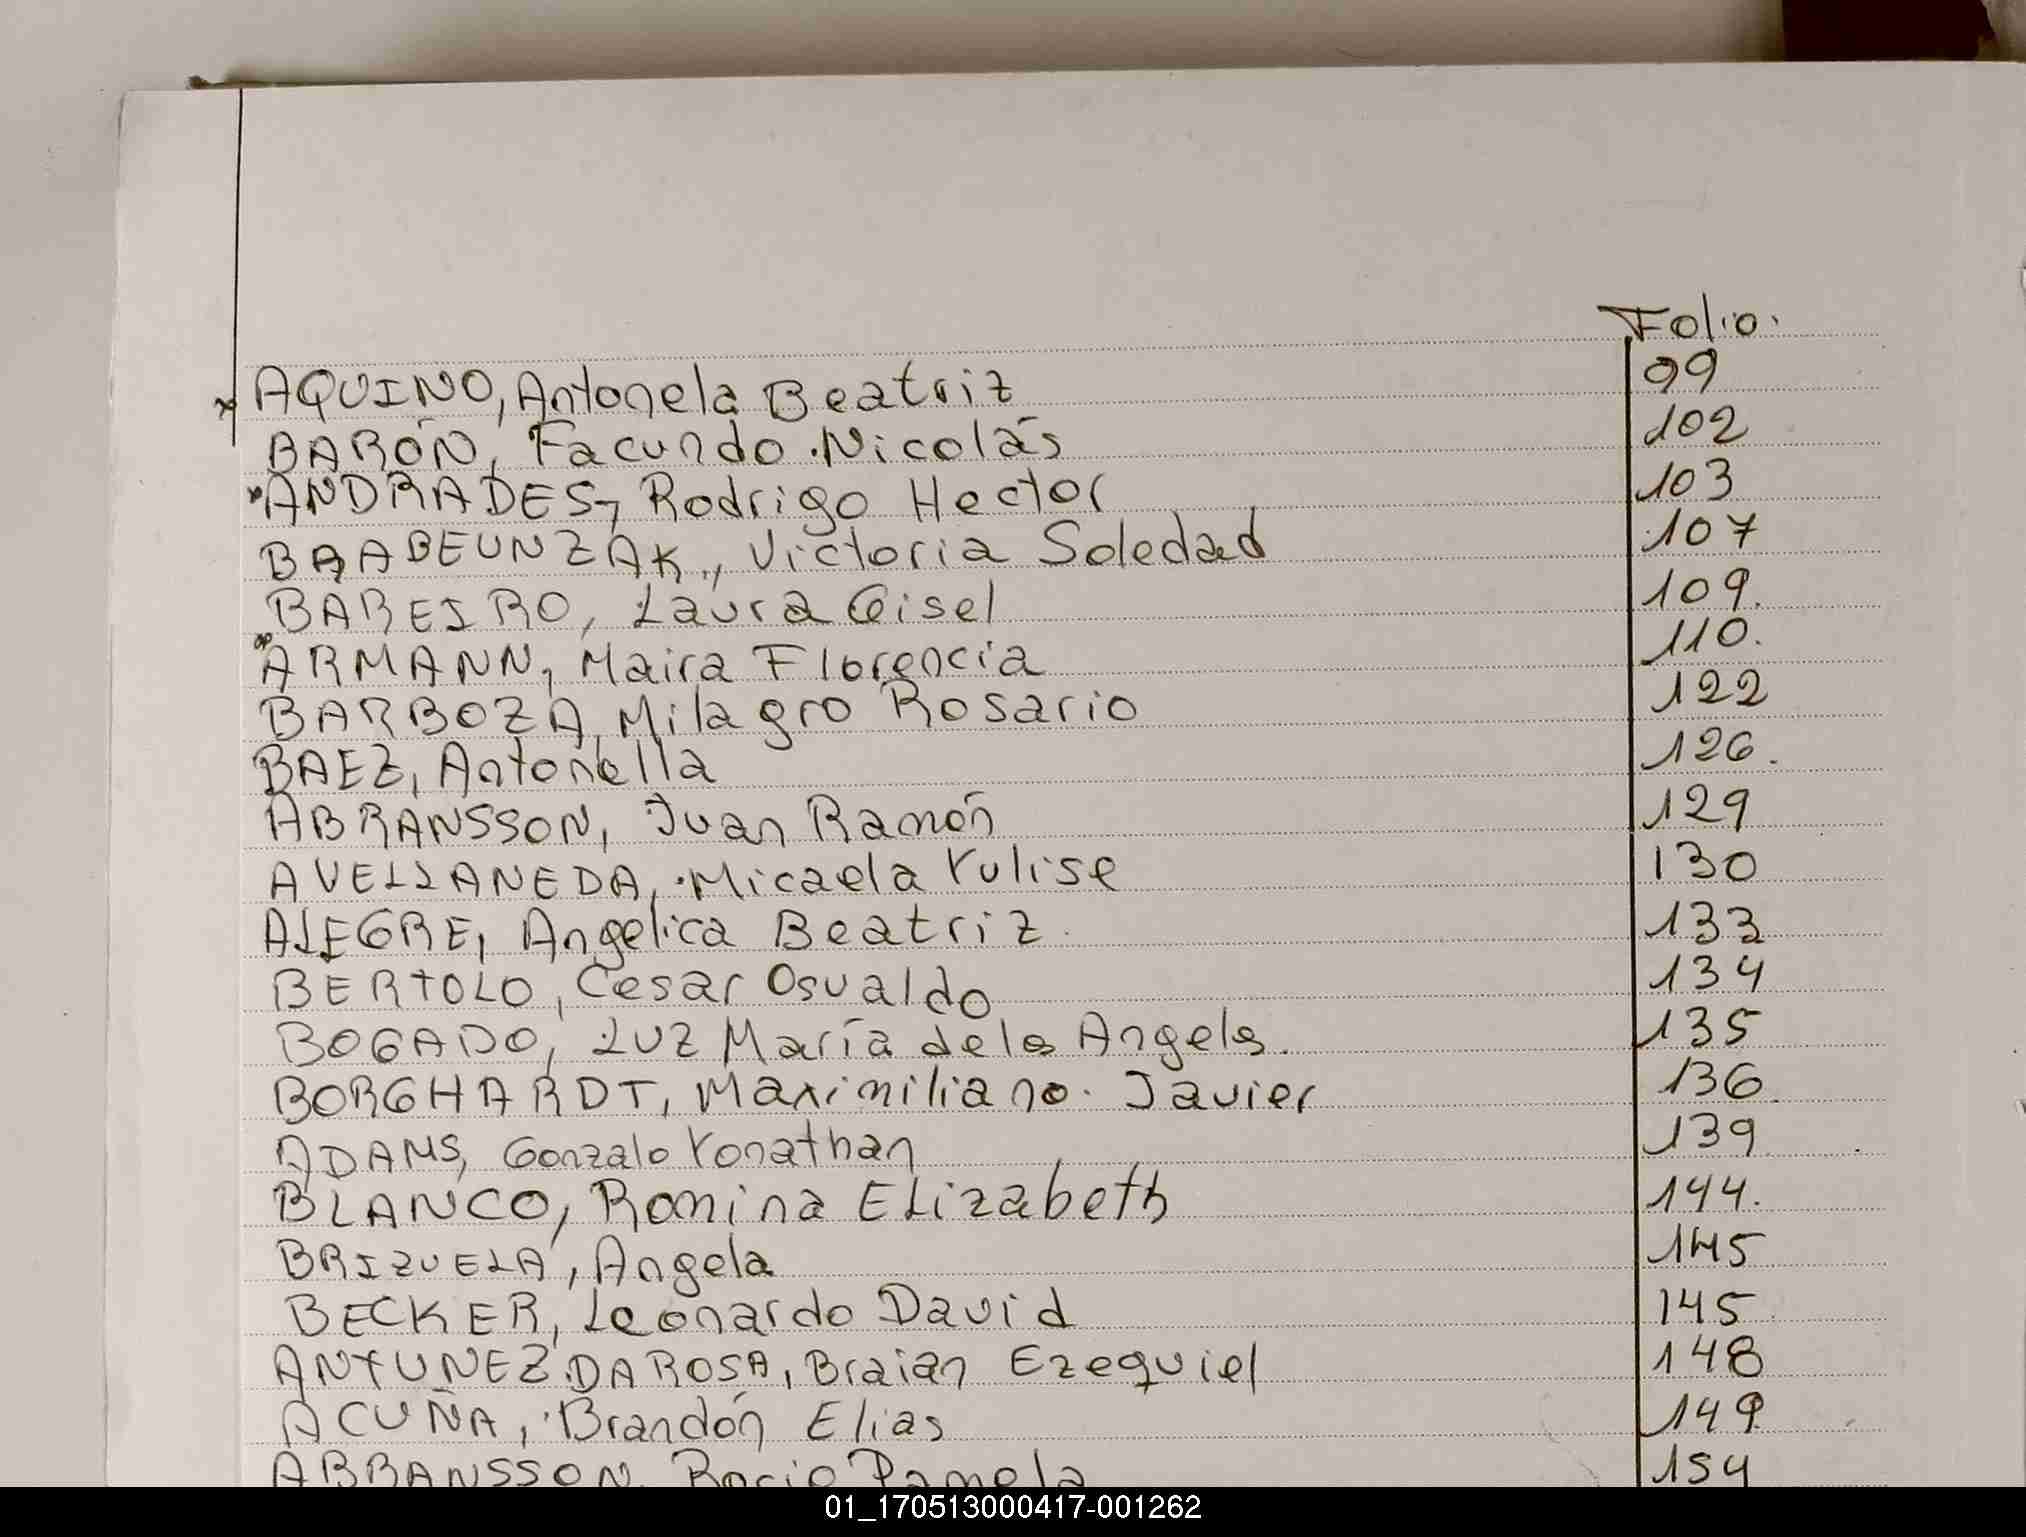 Folio.
AQUINO, Antonela Beatriz 99
BARÓN, Facundo Nicolás 102
ANDRADES, Rodrigo Hector 103
BRABEUNZAK, Victoria Soledad 107
BAREIRO, Laura Gisel 109.
ARMANN, Maira Florencia 110.
BARBOZA, Milagro Rosario 122
BAEZ, Antonella 126.
ABRANSSON, Juan Ramón 129
AVELLANEDA, Micaela Yulise 130
ALEGRE, Angelica Beatriz. 133
BERTOLO, Cesar Osvaldo 134
BOGADO, Luz María de los Angeles. 135
BORGHARDT, Maximiliano Javier 136.
ADAMS, Gonzalo Yonathan 139
BLANCO, Romina Elizabeth 144.
BRIZUELA, Angela 145
BECKER, Leonardo David 145
ANTUNEZ DA ROSA, Braian Ezequiel 148
ACUÑA, Brandón Elias 149
ABRANSSON, Rocio Pamela 154
01_170513000417-001262